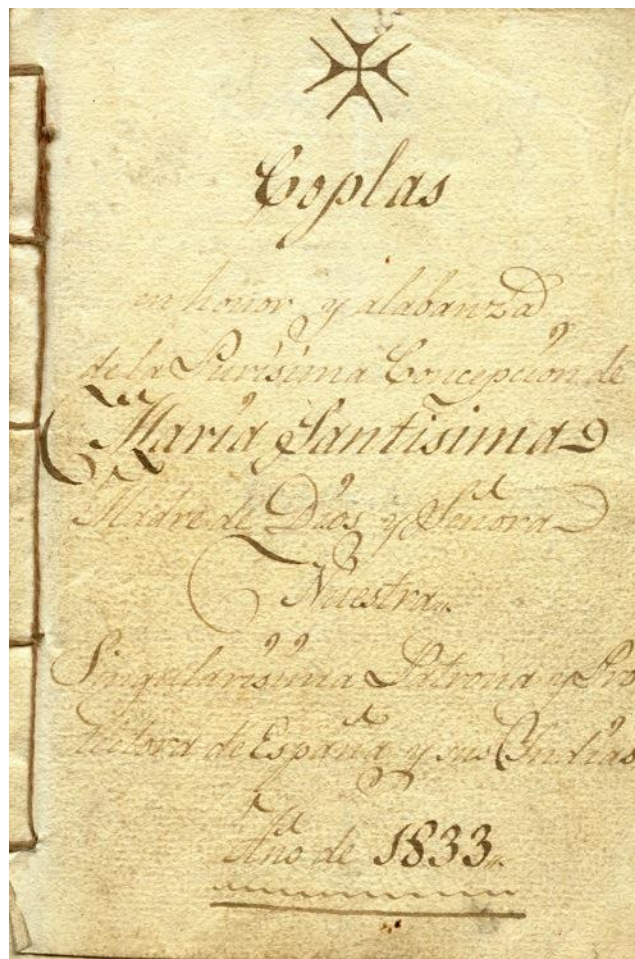 Coplas
en honor y alabanza
de la Purísima Concepción de
María Santísima
Madre de Dios y Señora
Nuestra
Singularísima Patrona y Pro
tectora de España y sus Indias
Año de 1833